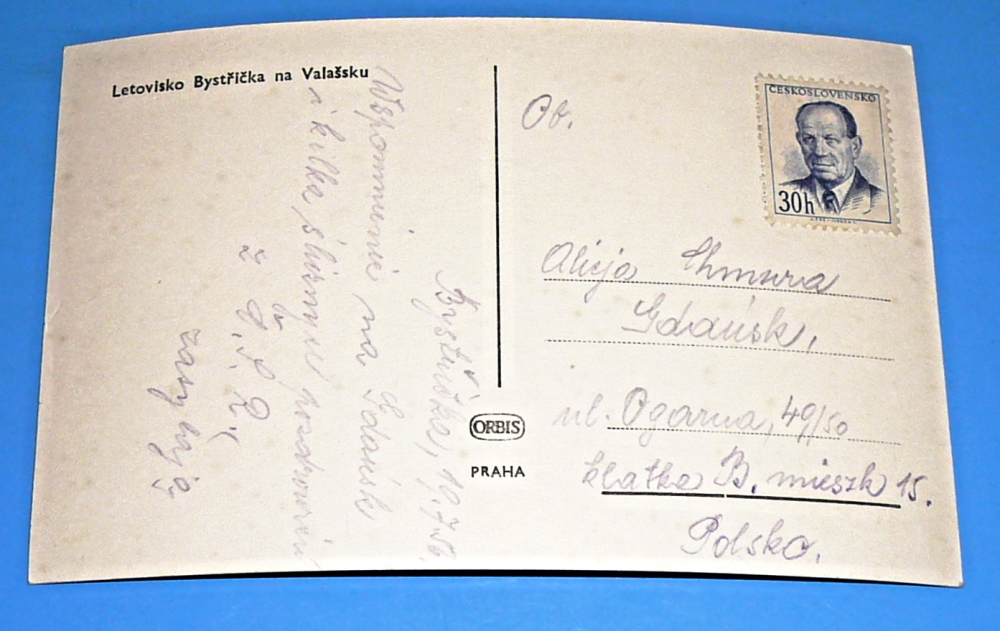 Letovisko Bystřička na Valašsku
Bystřička, 19.7.56.
Wspomnienie na Gdańsk
i kilka ślicznych pozdrowień
z Č.S.R.
zasyłają
ORBIS
PRAHA
ČESKOSLOVENSKO
30h
Ob.
Alicja Chmura
Gdańsk,
ul. Ogarna, 49/50
klatka B. mieszk 15.
Polsko.